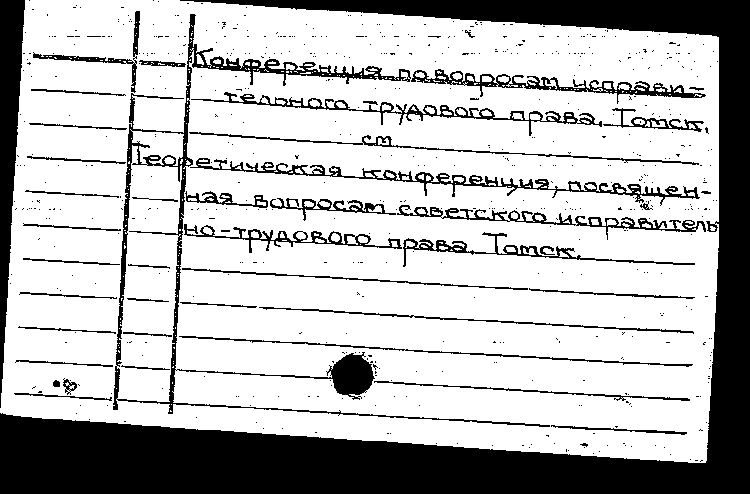 Конференция по вопросам исправи-
тельного трудового права. Томск.
см
Теоретическая конференция, посвящен-
ная вопросам советского исправитель
но-трудового права. Томск.